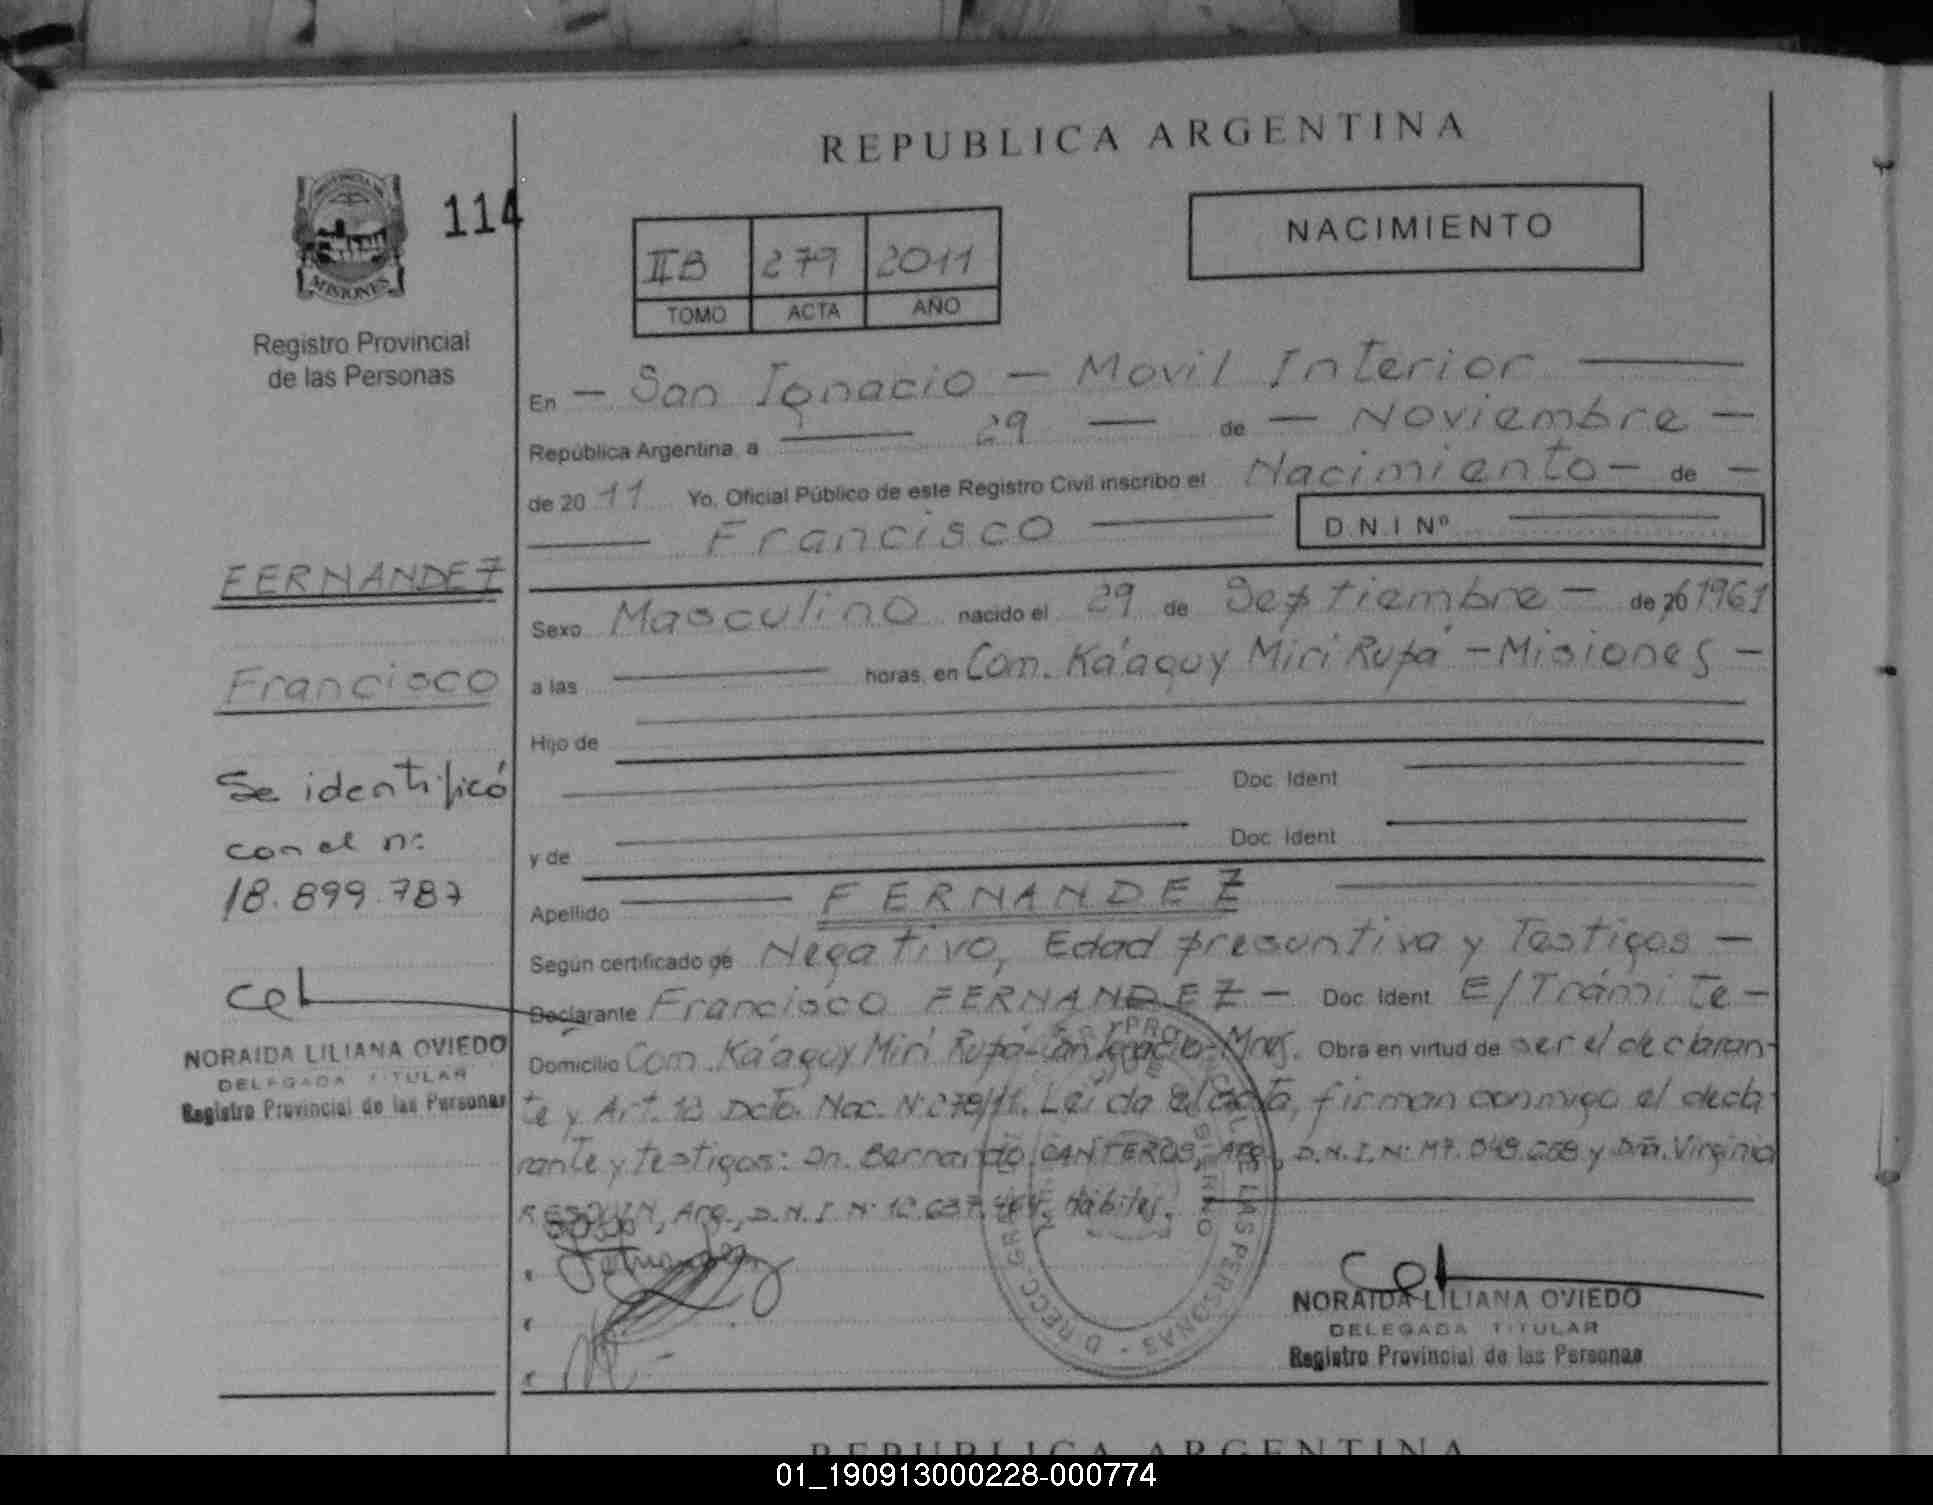 REPUBLICA ARGENTINA
PROVINCIA DE
MISIONES
114
Registro Provincial
de las Personas
IIB 279 2011
TOMO ACTA AÑO
NACIMIENTO
En - San Ignacio - Movil Interior
República Argentina, a 29 de - Noviembre -
de 20 11 Yo, Oficial Público de este Registro Civil inscribo el Nacimiento - de -
Francisco D.N.I Nº
FERNANDEZ
Francisco
Se identificó
con el n:
18.899.787
NORAIDA LILIANA OVIEDO
DELEGADA TITULAR
Registro Provincial de las Personas
Sexo Masculino nacido el 29 de Septiembre - de 1961
a las horas, en Com. Ka'aguy Miri Rupá - Misiones -
Hijo de
Doc. Ident
y de Doc. Ident
Apellido FERNANDEZ
Según certificado de Negativo, Edad presuntiva y Testigos -
Declarante Francisco FERNANDEZ - Doc. Ident E/Trámite -
Domicilio Com. Ka'aguy Miri Rupá - San Ignacio - Mnes. Obra en virtud de ser el declaran-
te y Art. Dcto. Nac. N: 278/11. Leída el acta, firman conmigo el decla
rante y testigos: Dn. Bernardo CANTEROS, Arg., D.N.I. N: M7. y Dña. Virginia
RESQUIN, Arg., D.N.I. N: Hábiles.
NORAIDA LILIANA OVIEDO
DELEGADA TITULAR
Registro Provincial de las Personas
REPUBLICA ARGENTINA
01_190913000228-000774